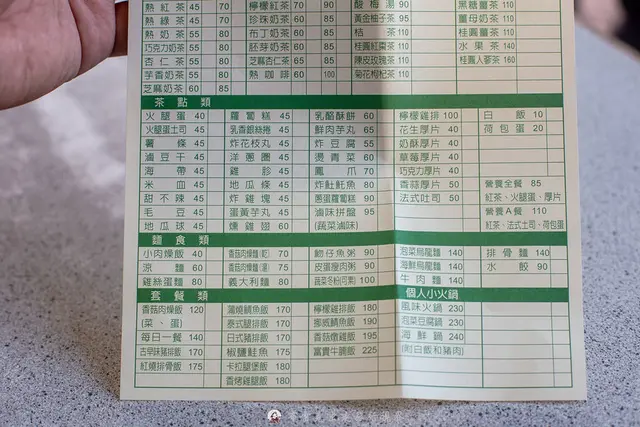 熱紅茶 45 55 檸檬紅茶 90 酸梅湯 90 黑糖薑茶 110
熱綠茶 45 55 珍珠奶茶 60 85 黃金柚子茶 95 薑母奶茶 110
熱奶茶 55 80 布丁奶茶 60 85 桔茶 110 桂圓薑茶 110
巧克力奶茶 55 80 胚芽奶茶 60 85 桂圓紅棗茶 110 水果茶 140
杏仁茶 55 80 芝麻杏仁茶 65 85 陳皮玫瑰茶 110 桂圓人蔘茶 160
芋香奶茶 55 80 熱咖啡 60 100 菊花枸杞茶 110
芝麻奶茶 60 80
茶點類
火腿蛋 40 蘿蔔糕 45 乳酪酥餅 60 檸檬雞排 100 白飯 10
火腿蛋土司 45 乳香銀絲捲 45 鮮肉芋丸 65 花生厚片 40 荷包蛋 20
薯條 45 炸花枝丸 45 炸豆腐 55 奶酥厚片 40
滷豆干 45 洋蔥圈 45 燙青菜 60 草莓厚片 40
海帶 45 雞胗 45 鳳爪 70 巧克力厚片 40
米血 45 地瓜條 45 炸魟魠魚 80 香蒜厚片 50 營養全餐 85
甜不辣 45 炸雞塊 45 蔥蛋蘿蔔糕 50 法式吐司 50 紅茶、火腿蛋、厚片
毛豆 45 蛋黃芋丸 45 滷味拼盤 95 營養A餐 110
地瓜球 45 燻雞翅 60 (蔬菜滷味) 紅茶、法式土司、荷包蛋
麵食類
小肉燥飯 40 香菇肉燥麵(乾) 70 魩仔魚粥 90 泡菜烏龍麵 140 排骨麵 140
涼麵 60 香菇肉燥麵(湯) 75 皮蛋瘦肉粥 90 海鮮烏龍麵 140 水餃 90
雞絲蛋麵 80 義大利麵 80 蔬菜冬粉(可素) 100 牛肉麵 140
套餐類 個人小火鍋
香菇肉燥飯 120 蒲燒鯛魚飯 170 檸檬雞排飯 180 風味火鍋 230
(菜、蛋) 泰式腿排飯 170 挪威鯖魚飯 190 泡菜豆腐鍋 230
每日一餐 140 日式豬排飯 170 香菇燉雞飯 195 海鮮鍋 240
古早味豬排飯 170 椒鹽鮭魚 175 富貴牛腩飯 225 (附白飯和豬肉)
紅燒排骨飯 175 卡拉腿堡飯 180
香烤雞腿飯 180